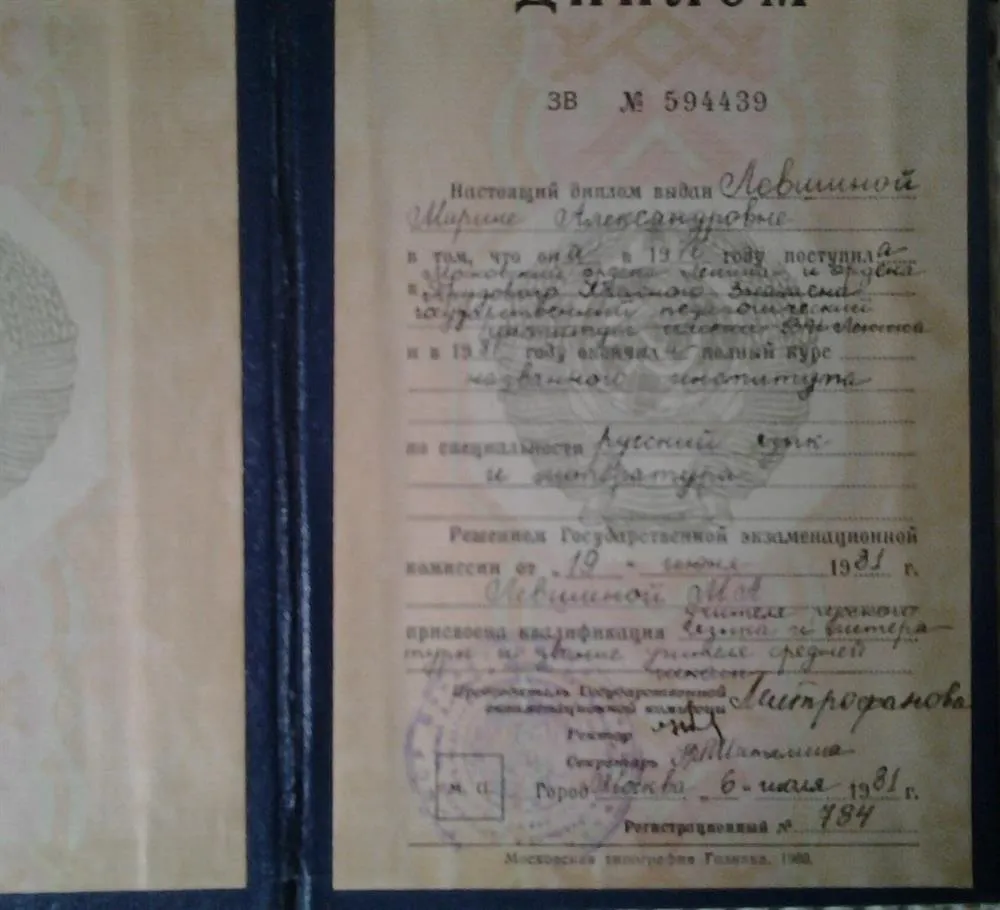 ДИПЛОМ
ЗВ № 594439
Настоящий диплом выдан Левшиной
Марине Александровне
в том, что она в 19 году поступила
Московский ордена Ленина и ордена
в Трудового Красного Знамени
государственный педагогический
институт имени В.И. Ленина
и в 1981 году окончила полный курс
названного института
по специальности русский язык
и литература
Решением Государственной экзаменационной
комиссии от „19" июня 1981 г.
Левшиной М А
учителя русского
присвоена квалификация языка и литера
туры и звание учителя средней
школы
Председатель Государственной
экзаменационной комиссии Митрофанова
Ректор
Секретарь
М. П. Город Москва „6" июля 1981 г.
Регистрационный № 784
Московская типография Гознака. 1980.